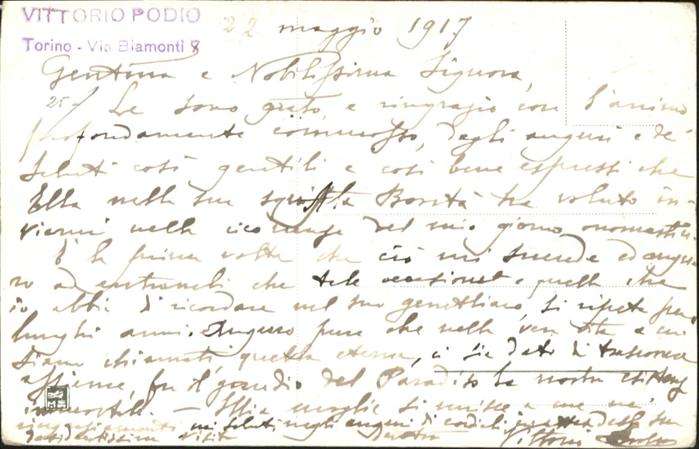 VITTORIO PODIO
Torino - Via Biamonti 8
22 maggio 1917
Gentma e Nobilissima Signora,
Le sono grato, e ringrazio con l'animo
profondamente commosso, degli auguri e de'
saluti così gentili e così bene espressi che
Ella nella sua squisita Bontà ha voluto in-
viarmi nella ricorrenza del mio giorno onomastico
È la prima volta che ciò mi succede ed augu-
ro ad entrambi che tale occasione e quella che
io ebbi di ricordare nel suo genetliaco, si ripeta per
lunghi anni. Auguro pure che nella vera vita a cui
siamo chiamati, quella eterna, ci sia dato di trascorrere
assieme, fra il gaudio del Paradiso la nostra
immortale. — Mia moglie si unisce a me nei
ringraziamenti nei saluti negli auguri di cordiali
visita Vittorio Podio